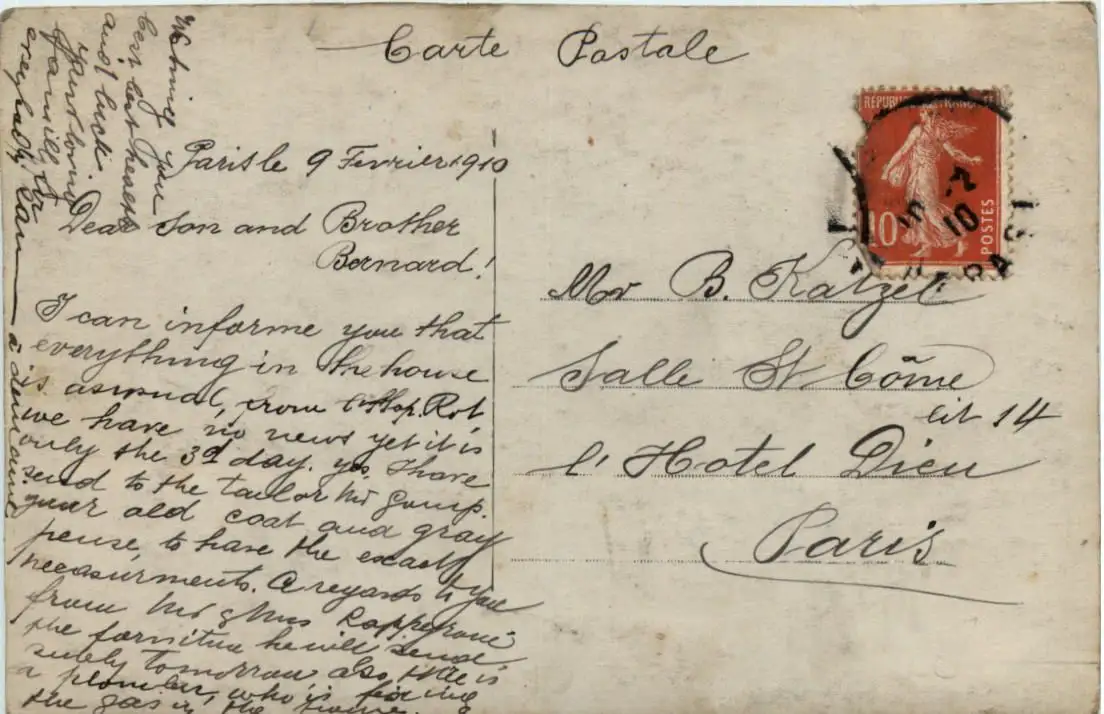 Carte Postale
Paris le 9 Fevrier 1910
Dear Son and Brother
Bernard!
I can informe you that
everything in the house
is as usual, from
we have no news yet it is
only the 3d day. yes, I have
send to the tailor Mr
your old coat and gray
to have the exact
measurments. A regards to you
from Mr & Mrs
the fornitur he will send
surely tomorrow also, there is
a plombier, who is fixing
the gas in the
Wishing you
best
and luck.
Your loving
family
everybody
à demain
REPUBLIQUE FRANCAISE
10
POSTES
10
Mr B. Katzel
Salle St Côme
lit 14
l'Hotel Dieu
Paris